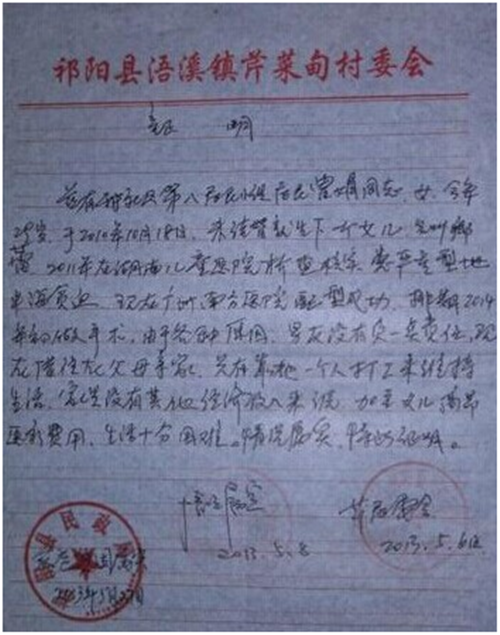 祁阳县浯溪镇芹菜甸村委会
证 明
兹有 社区第八居民小组居民曾 娟同志,女,今年
25岁,于2010年10月18日,未结婚就生下一个女儿,名叫
蕾,2011年在湖南儿童医院检查核实,患重型地
中海贫血,现在广州南方医院配型成功,排期2014
年初做手术,由于各种原因,男友没有负一点责任,现
在借住在父母亲家,只在靠她一个人打工来维持
生活,家里没有其他经济收入来源,加上女儿
医疗费用,生活十分困难。情况属实,特此证明。
情况属实
2013.5.8
2013.5.6
民政